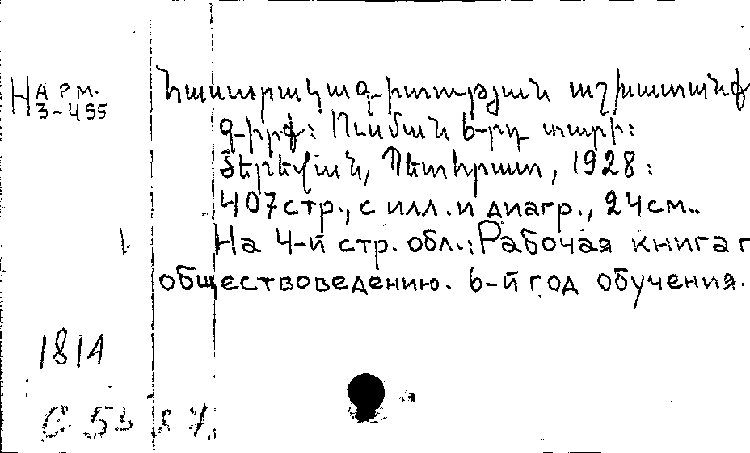 На рм. 3-455
Հասարակագիտության աշխատանք
գիրք: Ուսման 6-րդ տարի:
Երեվան, Պետհրատ, 1928:
407 стр., с илл. и диагр., 24 см..
На 4-й стр. обл.: Рабочая книга
обществоведению. 6-й год обучения.
1814